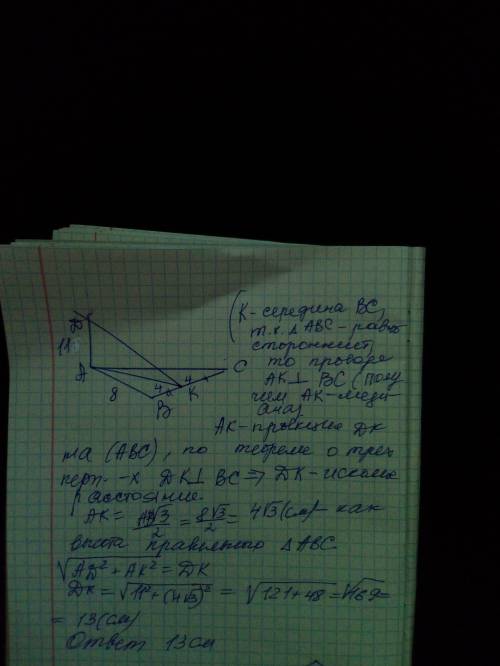 (К - середина BC,
т.к. △ABC - равно
сторонний,
то проводя
AK⊥ BC (полу
чим AK - меди
ана)
D
11
A
8
4
4
B
K
C
AK - проекция DK
на (ABC), по теореме о трех
перп. -х DK⊥ BC ⇒ DK - искомое
расстояние.
AK = AB√3/2 = 8√3/2 = 4√3 (см) как
высота правильного △ABC
√AD² + AK² = DK
DK = √11² + (4√3)² = √121 + 48 = √169 =
= 13 (см)
Ответ 13 см